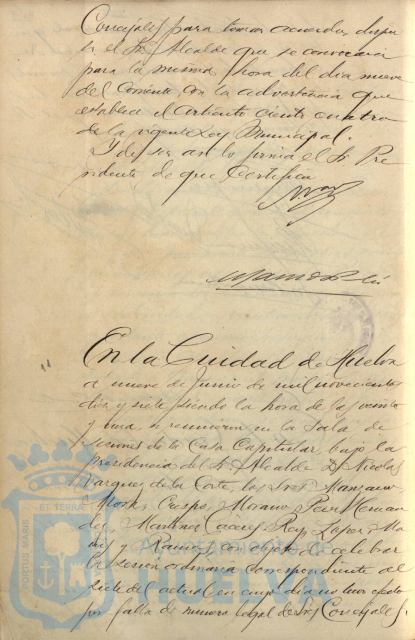 Concejales para tomar acuerdos, dispu
so el Sr. Alcalde que se convocara
para la misma hora del dia nueve
del corriente con la advertencia que
establece el articulo ciento cuatro
de la vigente Ley Municipal.
Y de ser asi lo firma el Sr. Pre
sidente de que Certifico
En la Ciudad de Huelva
a nueve de Junio de mil novecientos
diez y siete siendo la hora de las veinte
y una, se reunieron en la Sala de
sesiones de la Casa Capitular, bajo la
presidencia del Sr. Alcalde D. Nicolas
Vazquez de la Corte, los Sres
Crespo, Moreno, Hernan
dez, Martinez Rey, Lopez
y Ramos, con objeto de celebrar
la sesion ordinaria correspondiente al
siete del actual en cuyo dia no tuvo efecto
por falta de numero legal de Sres Concejales.
PORTUS MARIS
ET TERRAE
Ayuntamiento de
HUELVA